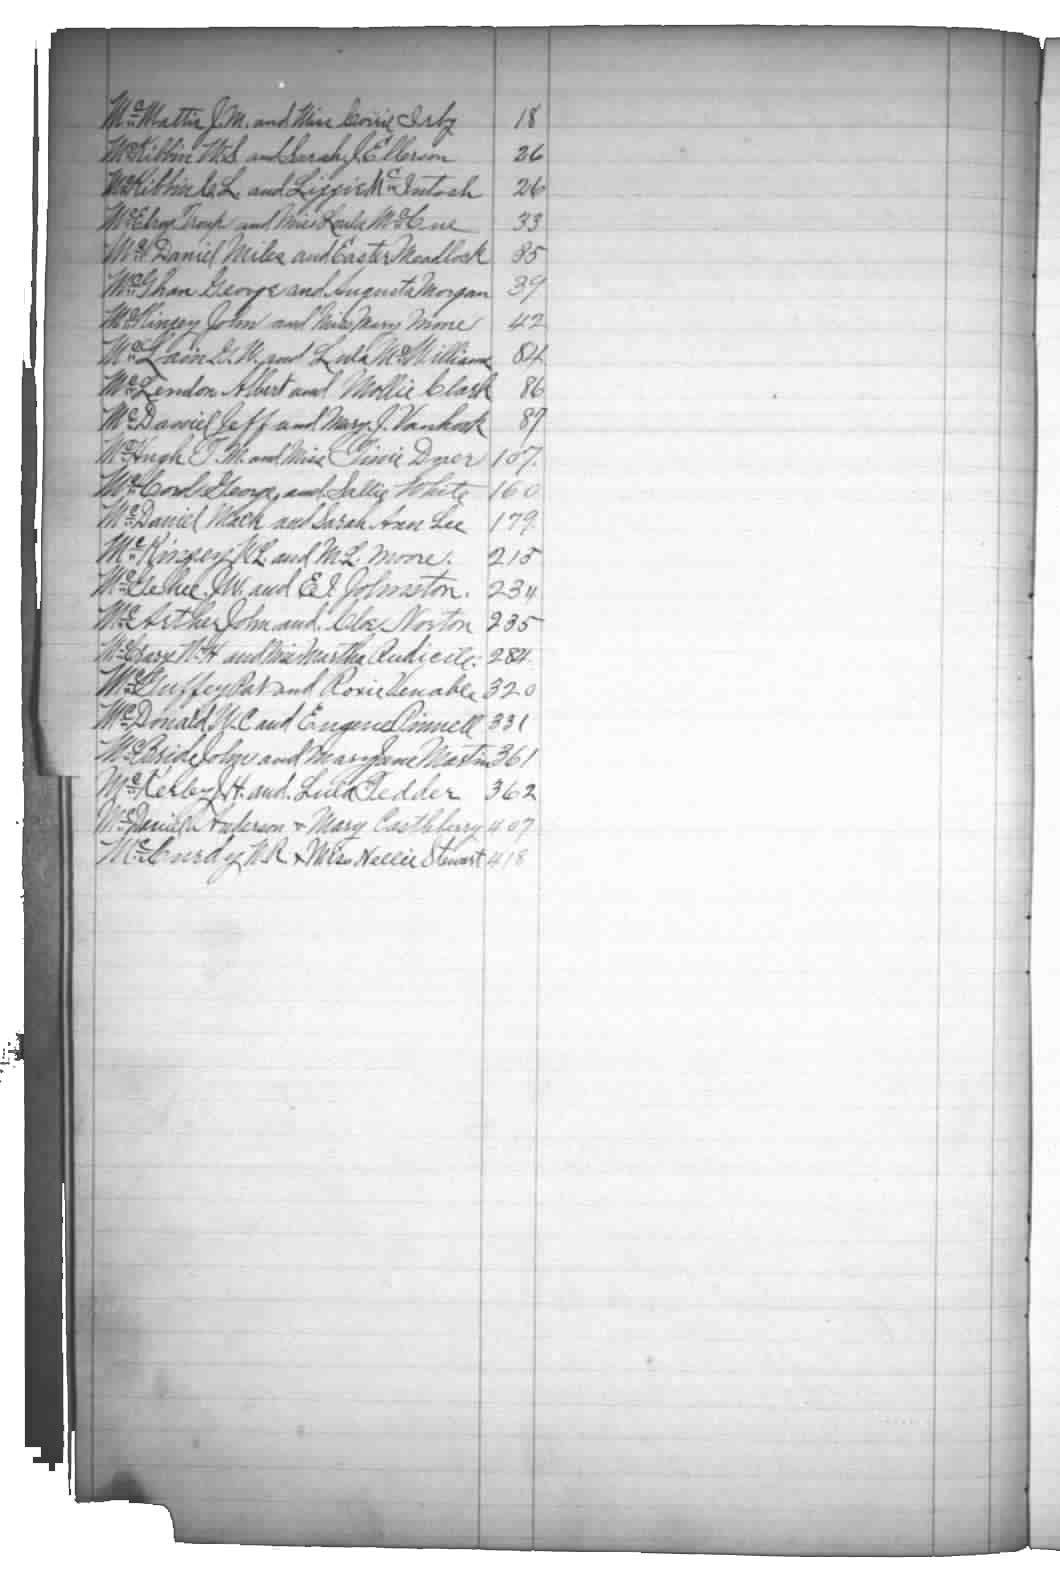 McMattis J. M. and Miss Corrie Irby 18
McKibbin M. S. and Sarah J. Ellerson 26
McKibbin C. L. and Lizzie McIntosh 26
McElroy Troup and Miss Loula McCue 33
McDaniel Miles and Easter Meadlock 35
McGhan George and Augusta Morgan 39
McKinsey John and Miss Mary Moore 42
McLain G. W. and Lula McWilliams 84
McLendon Albert and Mollie Clark 86
McDaniel Jeff and Mary J. Vanhook 87
McHugh T. M. and Miss Dyer 107
McCord George, and Sallie White 160
McDaniel Mack and Sarah Ann Lee 179
McKinsey K L. and M. L. Moore. 215
McGehee. J. W. and E. I Johnston. 234
McArther John and. Cloe Norton 235
McCrary W. H and Miss Martha Rudicile. 284
McGuffey Pat and Roxie Venable 320
McDonald W. C and Eugene Pinnell 331
McBride John and Mary Jane Martin 361
McKerley J. H. and. Lula Tedder 362
McDaniel Anderson & Mary Castleberry 407
McCurdy W. R & Miss Nellie Stewart 418